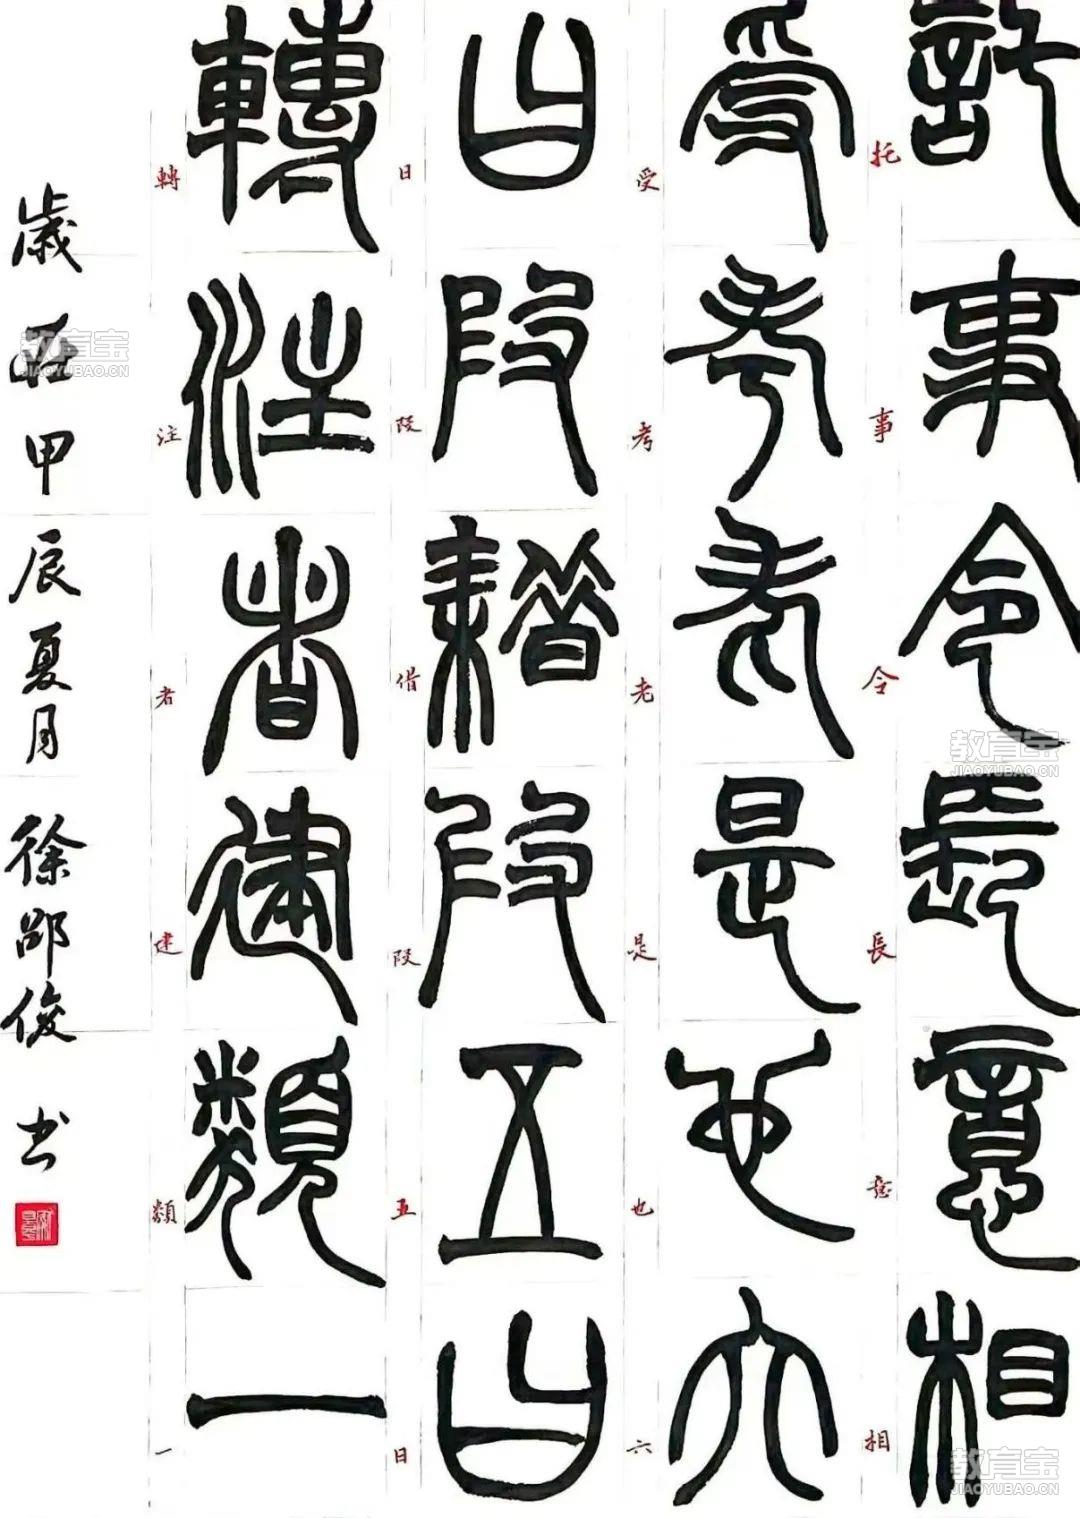 託事令長意相
托事令長意相
受考老是也六
受考老是也六
曰叚藉叚五曰
日叚借叚五日
轉注者建類一
轉注者建類一
歲在甲辰夏月徐邵俊书
教育宝
JIAOYUBAO.CN
教育宝
JIAOYUBAO.CN
教育宝
JIAOYUBAO.CN